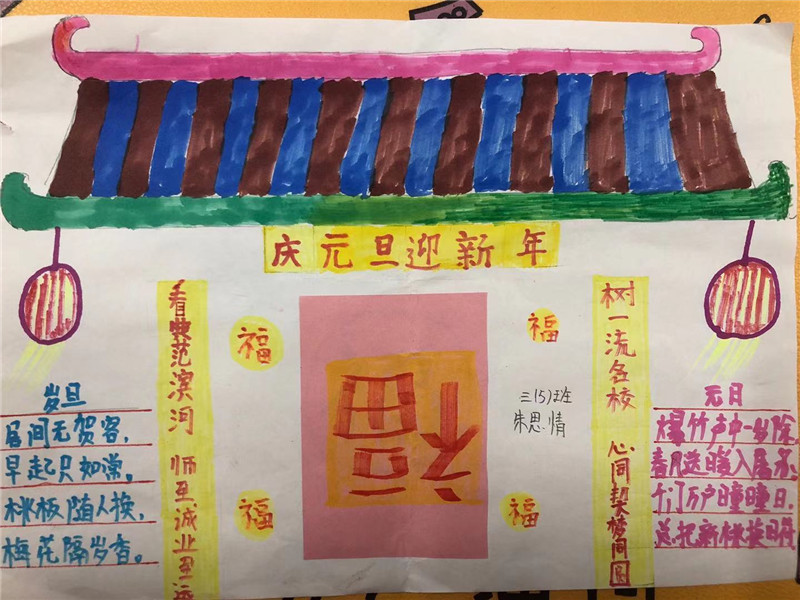 庆元旦迎新年
看典范滨河 师至诚业至远
树一流名校 心同契梦同圆
福
福
福
福
福
三(5)班
朱思情
岁旦
居间无贺客,
早起只如常。
桃板随人换,
梅花隔岁香。
元日
爆竹声中一岁除
春风送暖入屠苏
千门万户曈曈日,
总把新桃换旧符